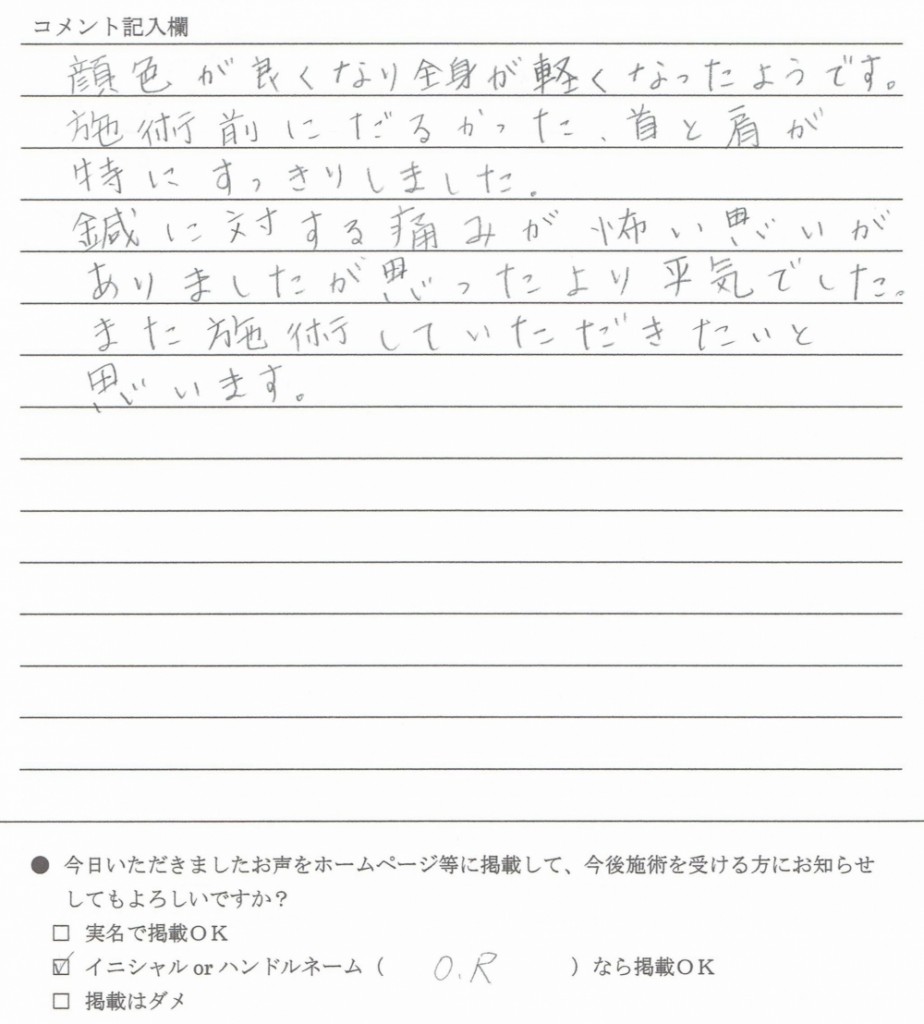 コメント記入欄
顔色が良くなり全身が軽くなったようです。
施術前にだるかった、首と肩が
特にすっきりしました。
鍼に対する痛みが怖い思いが
ありましたが思ったより平気でした。
また施術していただきたいと
思います。
● 今日いただきましたお声をホームページ等に掲載して、今後施術を受ける方にお知らせ
してもよろしいですか?
□ 実名で掲載OK
☑ イニシャル or ハンドルネーム( O.R )なら掲載OK
□ 掲載はダメ